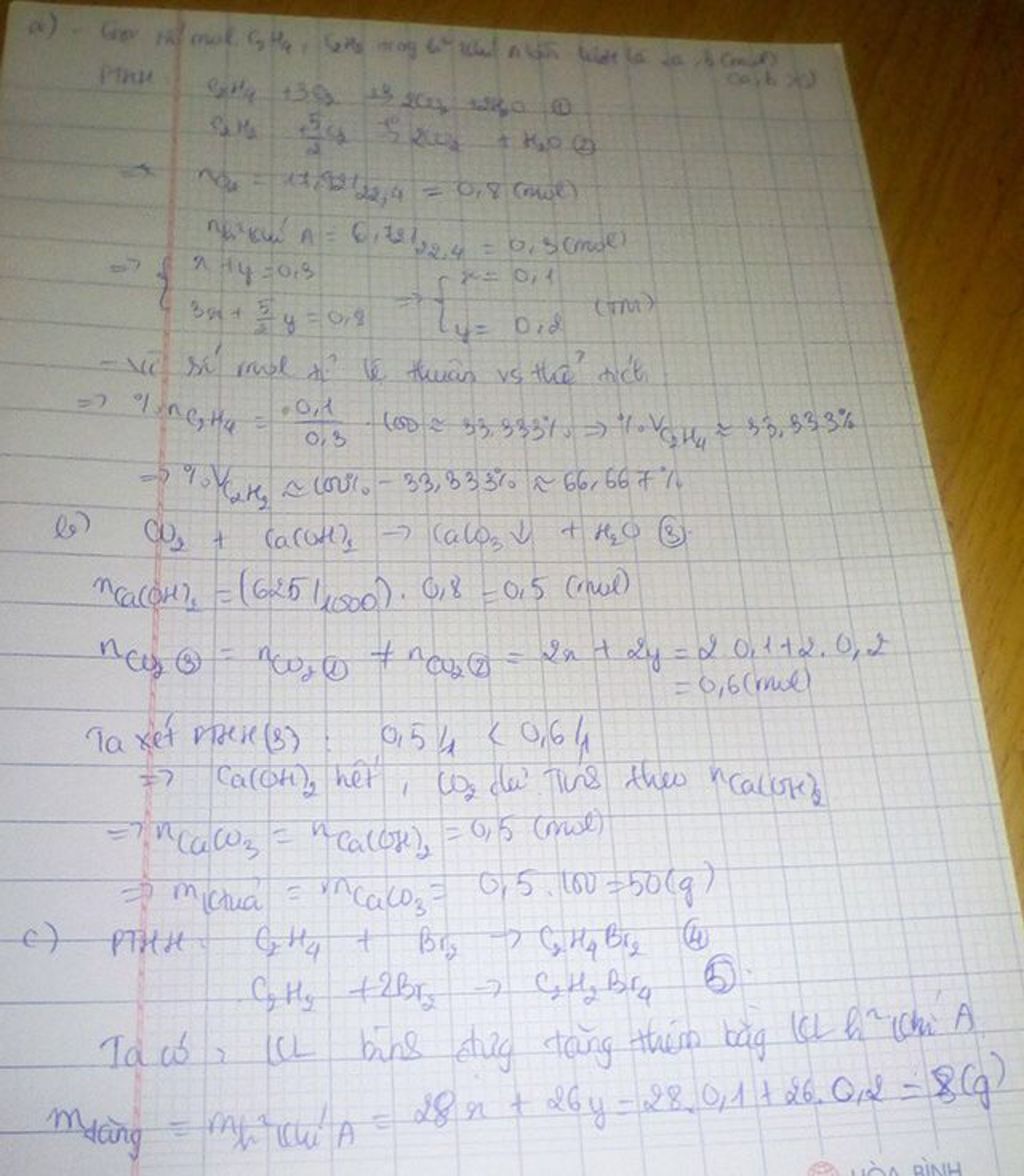 a) - Gọi số mol C₂H₄, C₂H₂ trong h² khí A lần lượt là a, b (mol)
(a, b >0)
PTHH: C₂H₄ + 3O₂ → 2CO₂ + 2H₂O ①
C₂H₂ + 5/2 O₂ → 2CO₂ + H₂O ②
=> nO₂ = 17,92/22,4 = 0,8 (mol)
nh² khí A = 6,72/22,4 = 0,3 (mol)
=> { x + y = 0,3 => { x = 0,1
3x + 5/2 y = 0,8 y = 0,2 (TM)
- Vì số mol tỉ lệ thuận vs thể tích
=> %nC₂H₄ = 0,1/0,3 . 100 ≈ 33,333% => %VC₂H₄ ≈ 33,333%
=> %VC₂H₂ ≈ 100% - 33,333% ≈ 66,667%
b) CO₂ + Ca(OH)₂ → CaCO₃↓ + H₂O ③
nCa(OH)₂ = (625/1000) . 0,8 = 0,5 (mol)
nCO₂③ = nCO₂① + nCO₂② = 2x + 2y = 2 0,1 + 2. 0,2
= 0,6 (mol)
Ta xét PTHH(3) : 0,5/1 < 0,6/1
=> Ca(OH)₂ hết, CO₂ dư Tính theo nCa(OH)₂
=> nCaCO₃ = nCa(OH)₂ = 0,5 (mol)
=> mktủa = mCaCO₃ = 0,5 . 100 = 50 (g)
c) PTHH: C₂H₄ + Br₂ → C₂H₄Br₂ ④
C₂H₂ + 2Br₂ → C₂H₂Br₄ ⑤
Ta có, KL bình đựng tăng thêm bằg KL h² khí A
mtăng = mh² khí A = 28x + 26y = 28. 0,1 + 26. 0,2 = 8 (g)
HÒA BÌNH